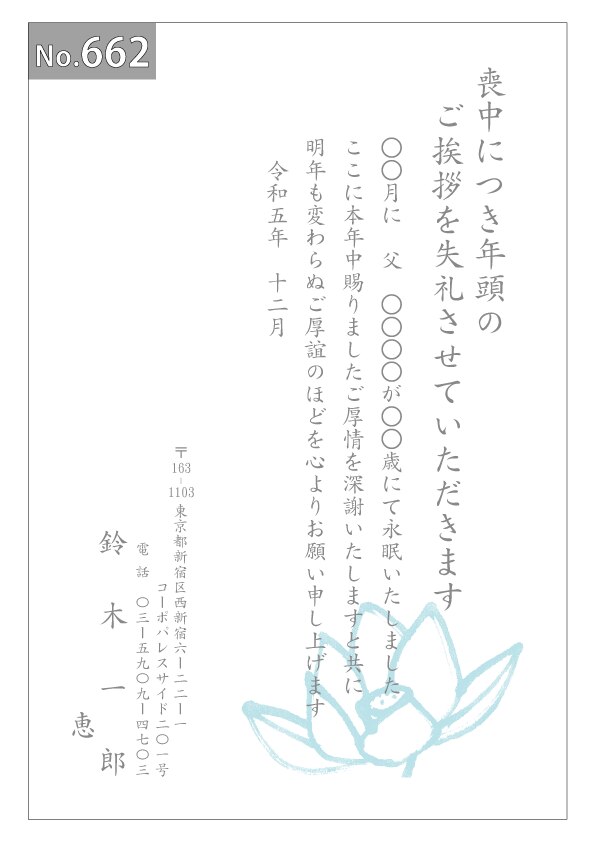 No.662
喪中につき年頭の
ご挨拶を失礼させていただきます
〇〇月に　父　〇〇〇〇が〇〇歳にて永眠いたしました
ここに本年中賜りましたご厚情を深謝いたしますと共に
明年も変わらぬご厚誼のほどを心よりお願い申し上げます
令和五年　十二月
〒163-1103 東京都新宿区西新宿六ー二二ー一
コーポパレスサイド二〇一号
電話　〇三ー五九〇九ー四七〇三
鈴木一郎
恵